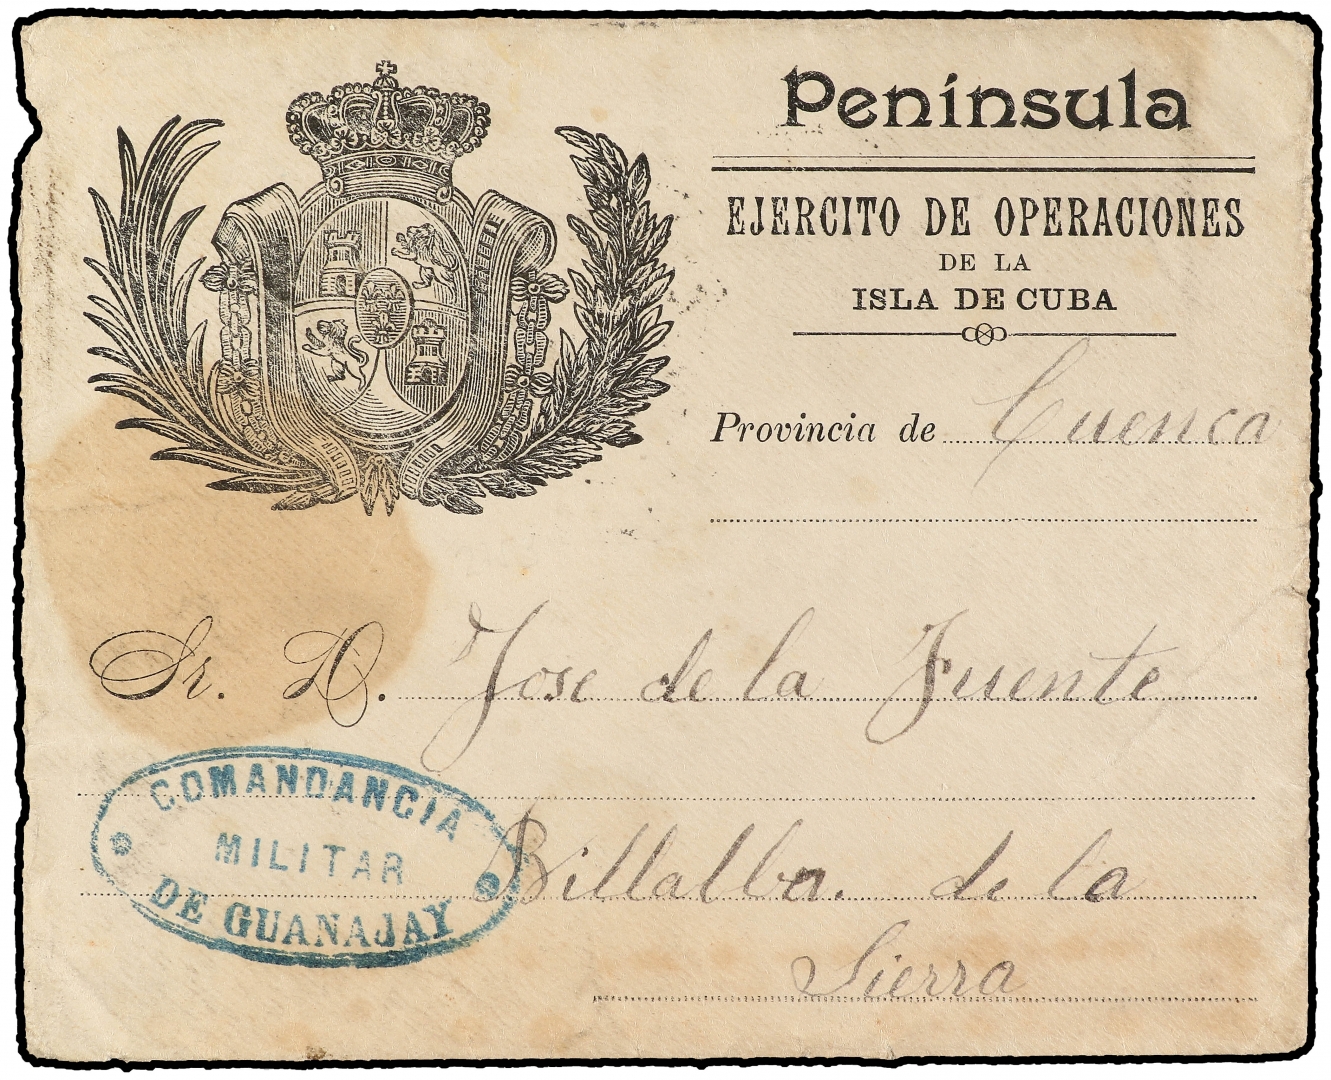 Península
EJERCITO DE OPERACIONES
DE LA
ISLA DE CUBA
Provincia de Cuenca
Sr. D. Jose de la Fuente
COMANDANCIA
MILITAR
DE GUANAJAY
Billalba. de la
Sierra